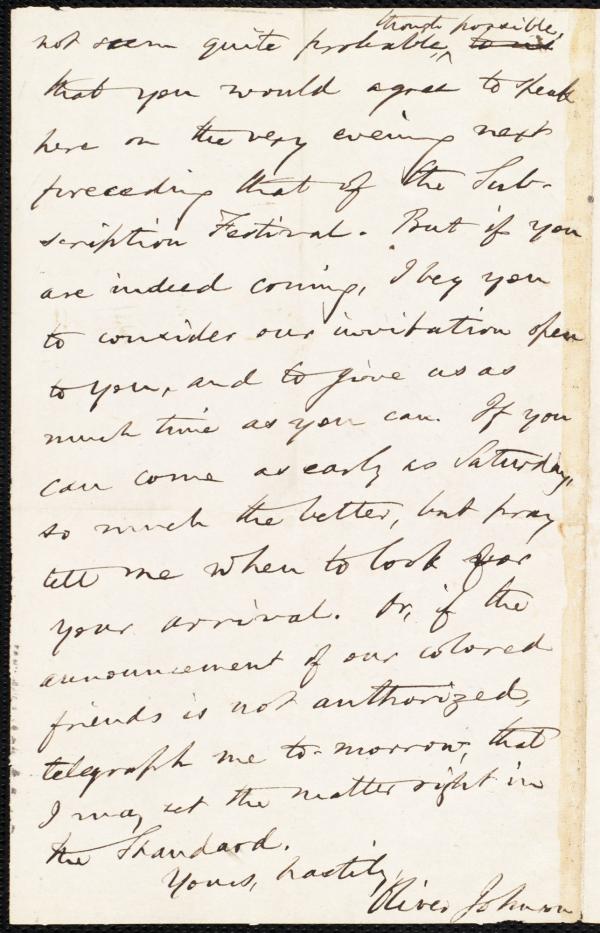 though possible,
not seem quite probable,
that you would agree to speak
here on the very evening next
preceding that of the Sub-
scription Festival. But if you
are indeed coming, I beg you
to consider our invitation open
to you, and to give us as
much time as you can. If you
can come as early as Saturday,
so much the better, but pray
tell me when to look for
your arrival. Or, if the
announcement of our colored
friends is not authorized,
telegraph me to-morrow, that
I may set the matter right in
the Standard.
Yours, hastily,
Oliver Johnson